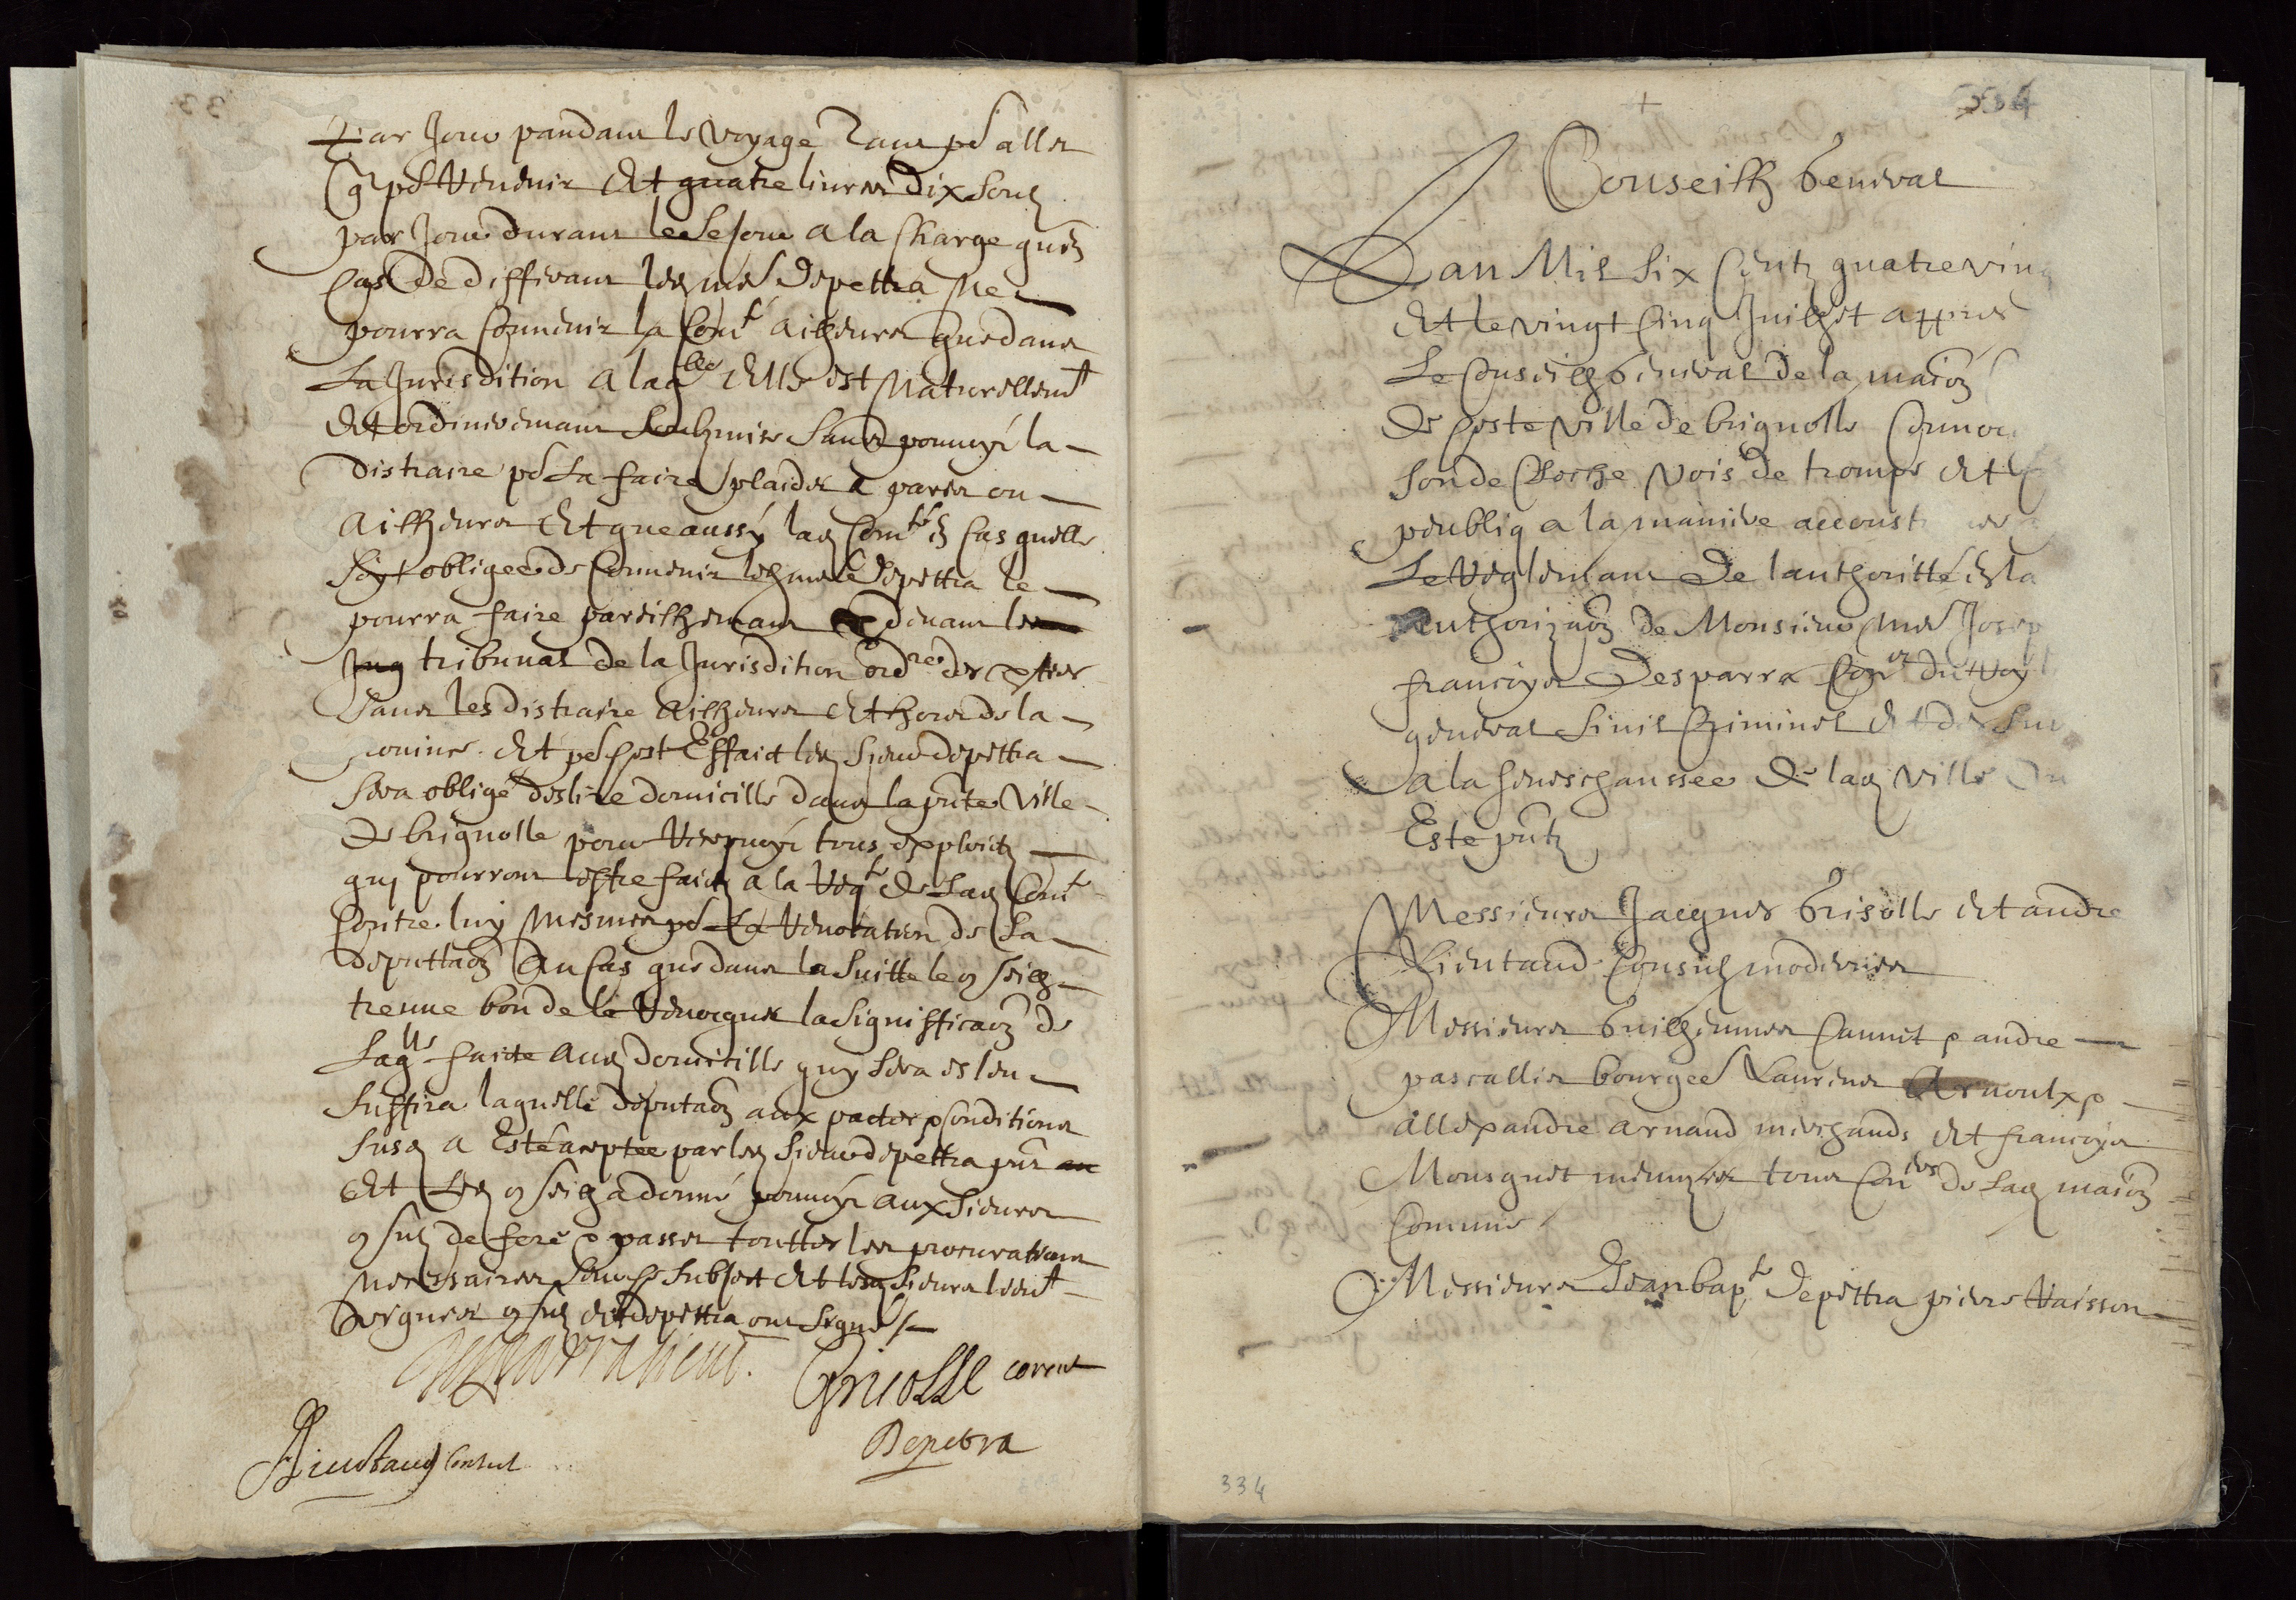 par Jour pandant le voyage Tant po.r aller
q. po.r Revenir Et quatre livres dix soulz
par Jour durant le sejour a la charge qu'en
cas de differant led m.e depettra ne
pourra convenir la Com.té ailheurs que dans
La Jurisdition a laq.lle Elle est Naturellem.t
Et ordineremant soubzmise sans pouvoyr la
distraire po.r La faire plaider a paris ou
Ailheurs Et que aussy lad Com.té en cas quelle
soyt obligee de convenir led me depettra le
pourra faire pareilhemant devant les
Jug tribunal de la Jurisdition ord.re des parties
sans les distraire Ailheurs Et hors de la
rovince Et po.r cest Effaict led sieur depettra
sera obligé deslire domicille dans la p.nte Ville
de brignolle pour Recepvoyr tous exploictz
quy pourront estre faictz a la Req.te de Lad Com.té
contre luy mesmes po.r La Revocation de La
deputta.on Au cas que dans la suitte le conseilh
treuve bon de le Revocquer la signifficaon de
Laq.lle faicte aud domicille quy sera esleu
suffira laquelle deputaon aux pactes & conditions
susd a Esté aceptée par led sieur depettra p.nt au
Et Led conseilh a donné pouvoyr aux sieurs
consulz de fere & passer touttes les procurations
Necessaires sur ce subject Et lesd sieurs lieut.t
Vergnier consulz et depettra ont signé /.
desparra lieut.
Grisolle corent
Lieutaud Consul
Depetra
334
+
Conseilh General
L an Mil six centz quatre ving
Et le vingt cinq Juilhet appres
Le Conseilh General de la maion
de ceste ville de brignolle convoc
son de cloche vois de trompe Et
peubliq a la maniere accoust
Le Reglemant de lauthoritté Et la
Authorizaon de Monsieur me Josep
françoys Desparra con.er du Roy
general sivil criminel Et de sur
a la seneschaussée de lad ville
Esté p.ntz
Messieurs Jacques Grisolle Et andre
Lieutaud Consulz modernes
Messieurs Guilheumes Cannet & andre
pascallis bourgeo Laurens Arnoulx &
allexandre arnaud merchands Et françoys
Mousquet menuzier tous con.ers de Lad maion
Commune
Messieurs Jean bap.te Depettra pierre Vaisson
334